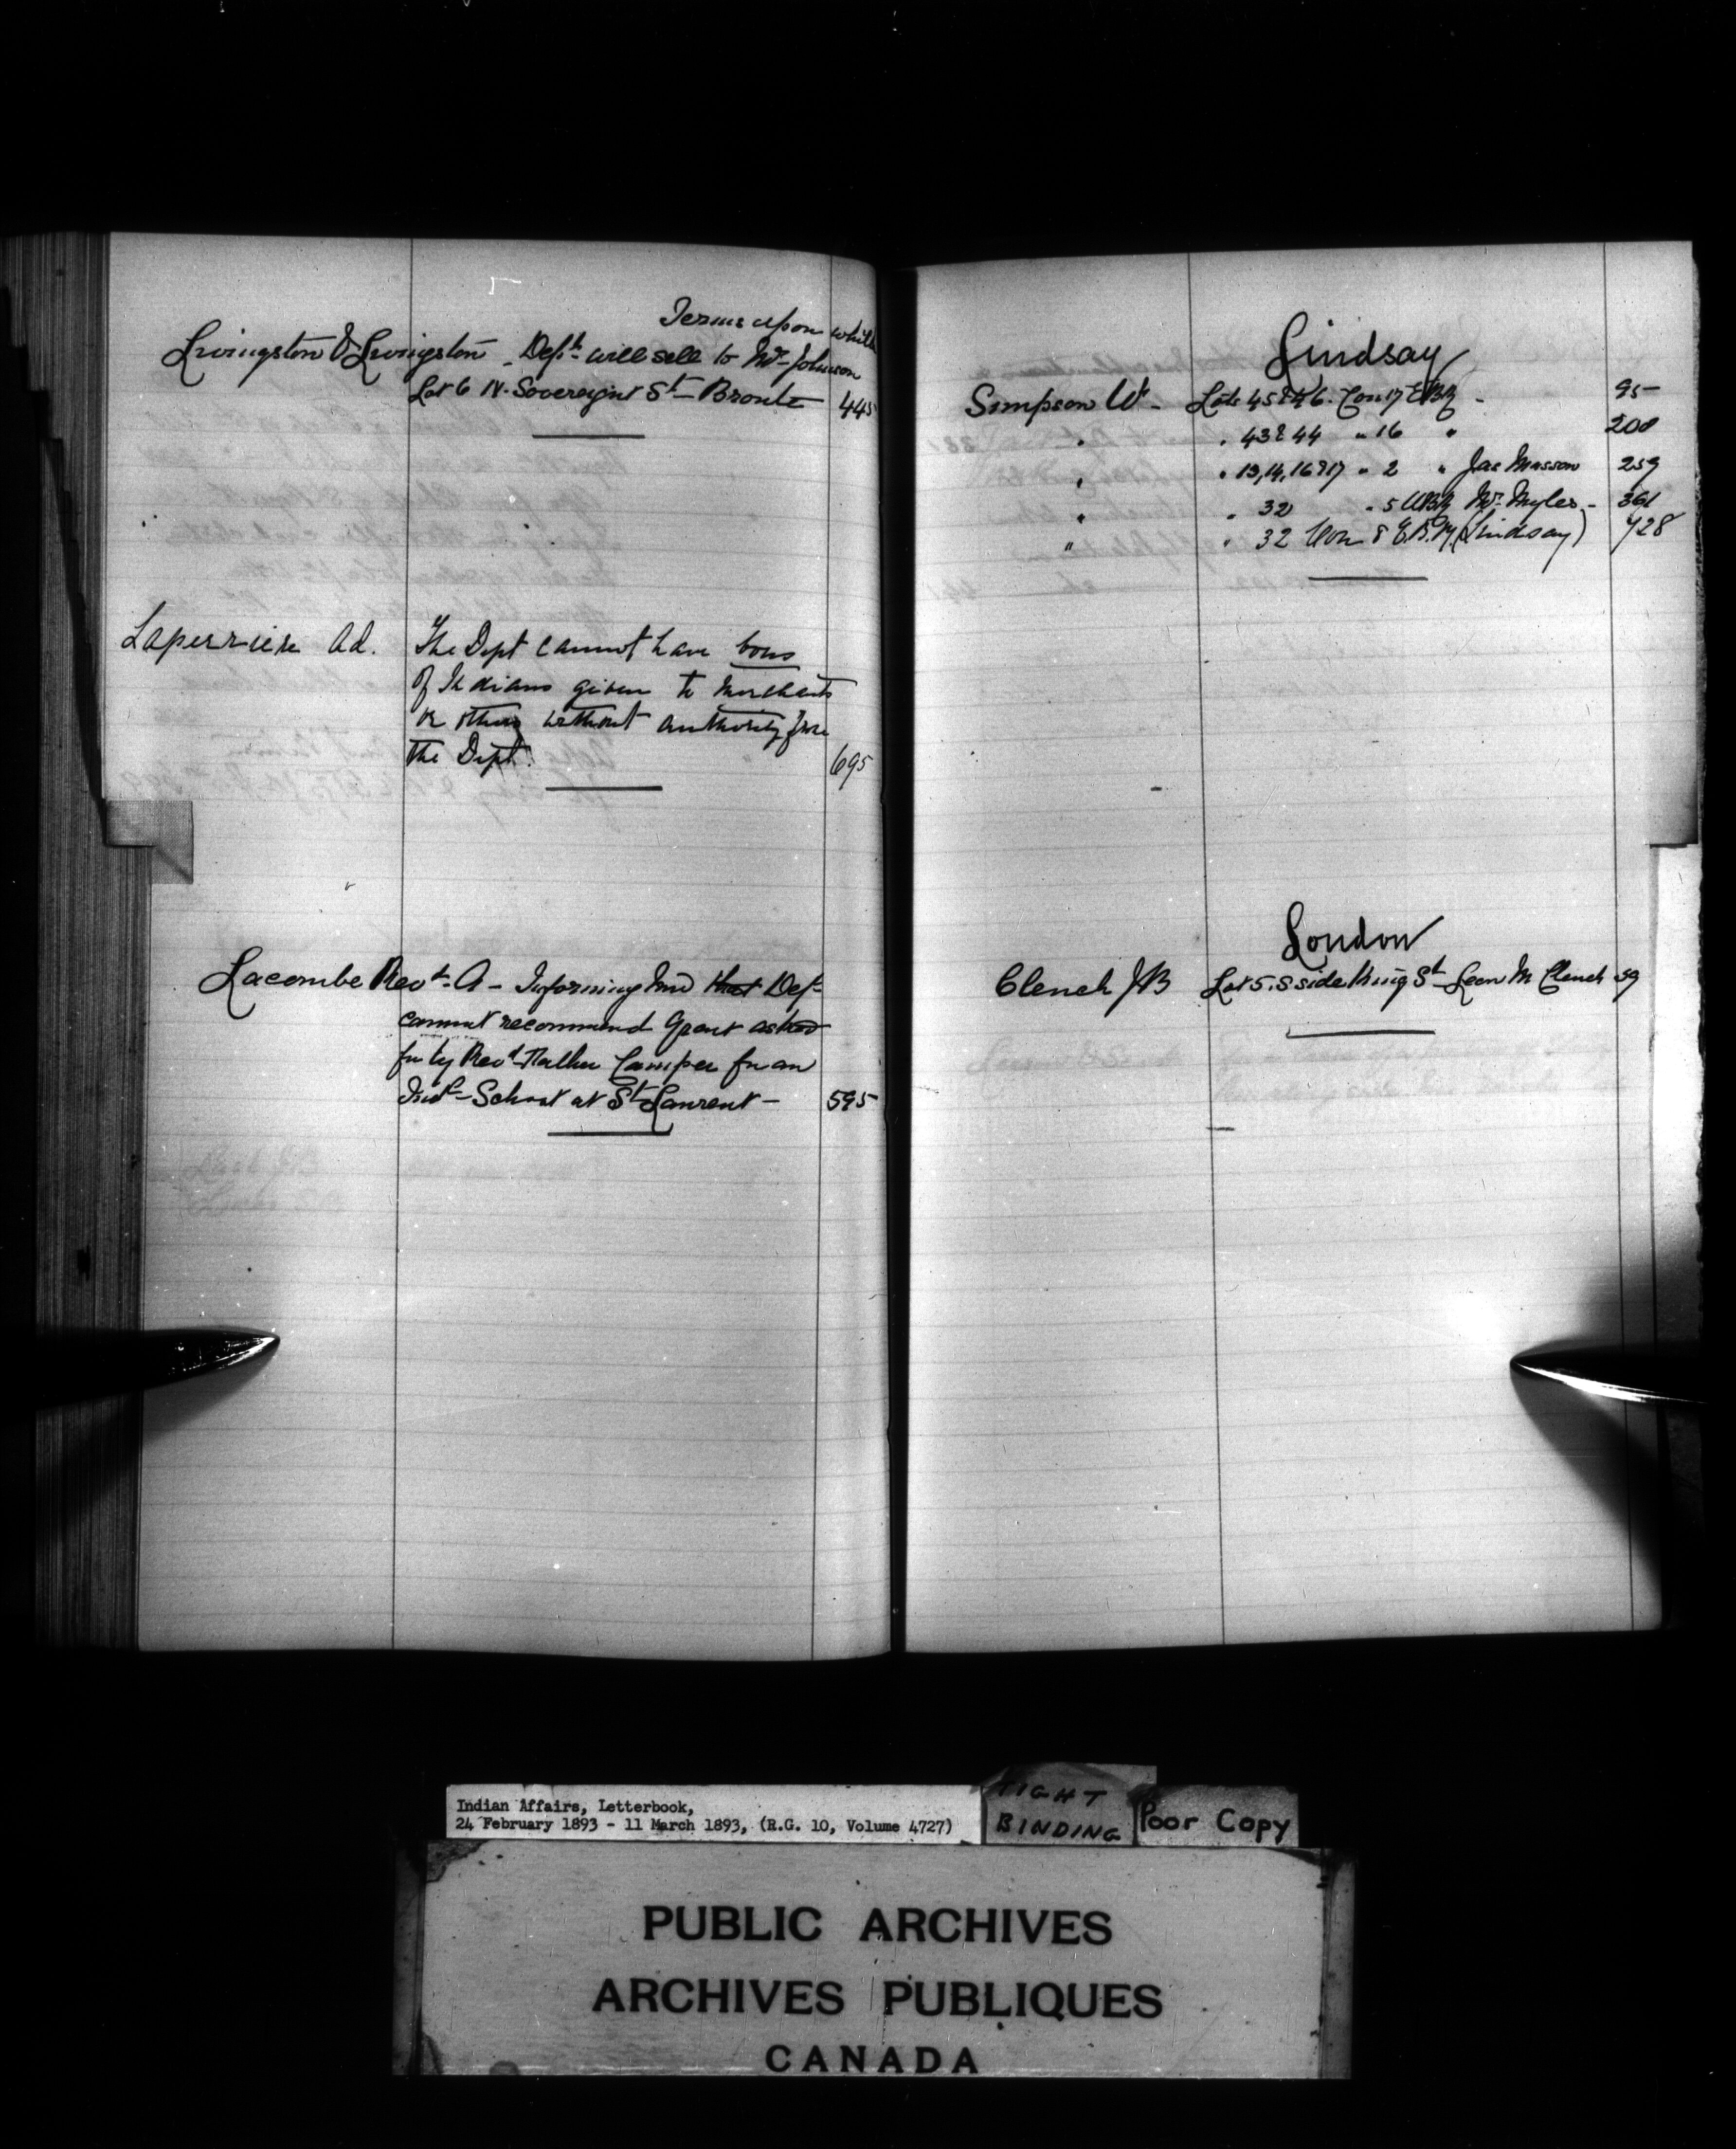 Terms upon which
Livingston & Livingston - Dept. will sell to Mr. Johnson
Lot 6 N. Sovereign St - Bronte 445
Laperriere Ad. The Dept cannot have bons
of Indians given to merchants
or others without authority from
the Dept. 695
Lacombe Revd. A - Informing him that Dept
cannot recommend Grant asked
for by Revd. Father Camper for an
Indl - School at St Laurent - 595
Lindsay
Simpson W - Lots 45 & 46. Con 17 EBR - 95
" " 43 & 44 " 16 " 200
" " 13, 14, 16 & 17 " 2 " Jas Masson 259
" " 32 " 5 WBR Mr. Myles - 361
" " 32 Con 8 E.B.R. (Lindsay) 728
London
Clench J B Lot 5. S side King St - Leon M Clench 59
Indian Affairs, Letterbook,
24 February 1893 - 11 March 1893, (R.G. 10, Volume 4727)
TIGHT
BINDING
Poor Copy
PUBLIC ARCHIVES
ARCHIVES PUBLIQUES
CANADA